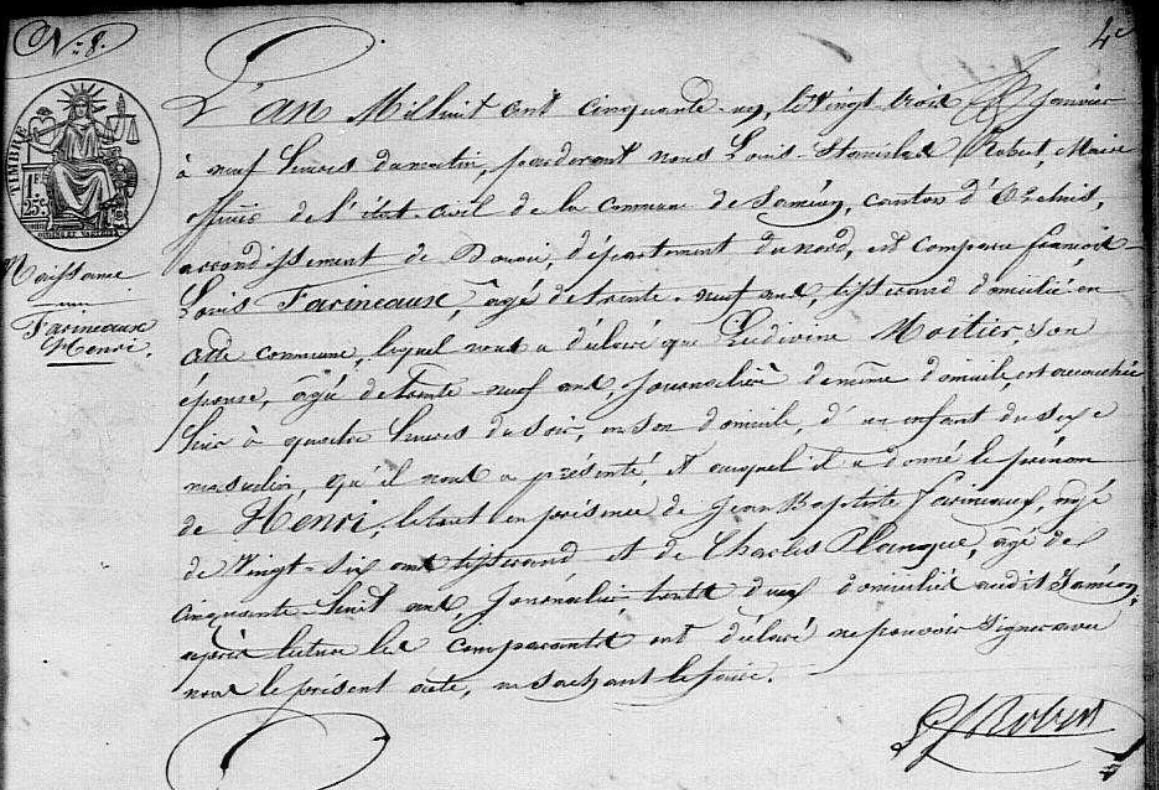 N.º 8.
4e
TIMBRE
1 FR
25 c
Naissance
Farineaux
Henri.
L'an Mil huit cent cinquante-un, le Vingt trois Janvier
à neuf heures du matin, pardevant nous Louis-Stanislas Robert, Maire
officier de l'état-civil de la Commune de Saméon, canton d'Orchies,
arrondissement de Douai, département du nord, est comparu françois
Louis Farineaux, âgé de trente-neuf ans, tisserand domicilié en
cette commune, lequel nous a déclaré que Ludivine Moitier, son
épouse, âgée de trente-neuf ans, journalière de même domicile, est accouchée
hier à quatre heures du soir, en son domicile, d'un enfant du sexe
masculin, qu'il nous a présenté, et auquel il a donné le prénom
de Henri, le tout en présence de Jean Baptiste farineaux, âgé
de Vingt-six ans tisserand et de Charles Planque, âgé de
cinquante-huit ans, Journalier, tous deux domiciliés audit Saméon,
après lecture les comparants ont déclaré ne pouvoir signer avec
nous le présent acte, ne sachant le faire.
LS Robert